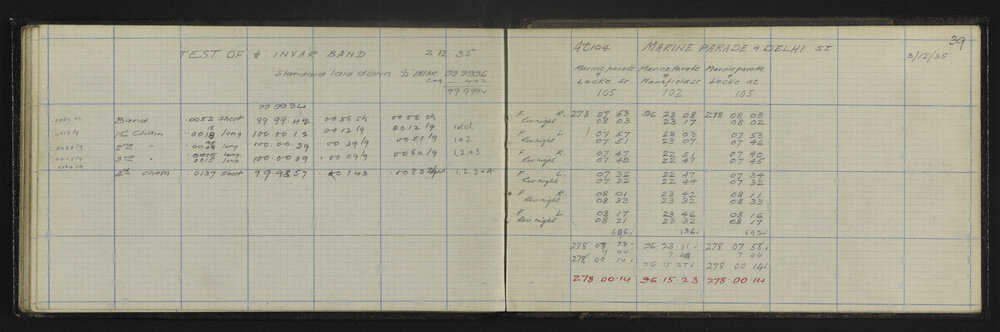 TEST OF ½" INVAR BAND 2 12 35
Standard laid down ½" INVAR 99 9996
99 9994
99 9994
Band .0052 short 99 99 42 0058 sh 0058 sh
1st Chain 0018 long 100 00 12 0012 lg 0012 lg
2nd " long 100.00.39 00 39 lg 0051 lg 1.2
3rd " 0015 long 100.00.09 0009 lg 0060 lg 1,2,03
4th chain .0137 short 99.9857 0143 0083 short 1,2,3&4
39
At 104 MARINE PARADE & DELHI ST 3/12/35
Marine parade Marine Parade Marine parade
& & &
Locke St Mansfield St Locke St
105 102 105
F R. 278 07 53 96 23 08 278 08 03
Rev right 08 03 23 17 08 02
F L 07 57 23 03 07 53
Rev right 07 51 23 07 07 46
F R 07 47 22 51 07 40
Rev right 07 40 22 47 07 45
F L. 07 32 22 47 07 34
Rev right 07 32 22 44 07 32
F R. 08 01 23 42 08 11
Rev right 08 33 23 32 08 33
F L 08 17 23 46 08 16
Rev right 08 21 23 32 08 17
136 692
278 07 58 96 23 11 278 07 58
7 44 7 44 7 44
278 00 14 96 15 27 278 00 14
278.00.14 96.15.23 278.00.14